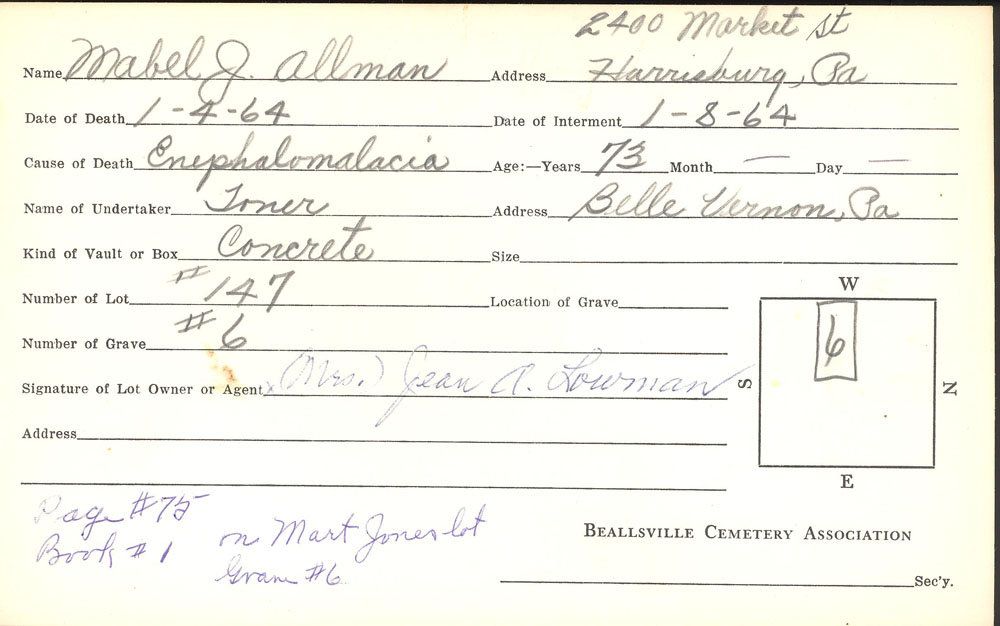 2400 Market St
Name Mabel J. Allman Address Harrisburg, Pa
Date of Death 1-4-64 Date of Interment 1-8-64
Cause of Death Enephalomalacia Age:—Years 73 Month — Day —
Name of Undertaker Toner Address Belle Vernon, Pa
Kind of Vault or Box Concrete Size
Number of Lot #147 Location of Grave
Number of Grave #6
Signature of Lot Owner or Agent x (Mrs.) Jean A. Lowman
Address
W
6
S N
E
Page #75
Book #1
on Mart Jones lot
Grave #6
BEALLSVILLE CEMETERY ASSOCIATION
Sec'y.